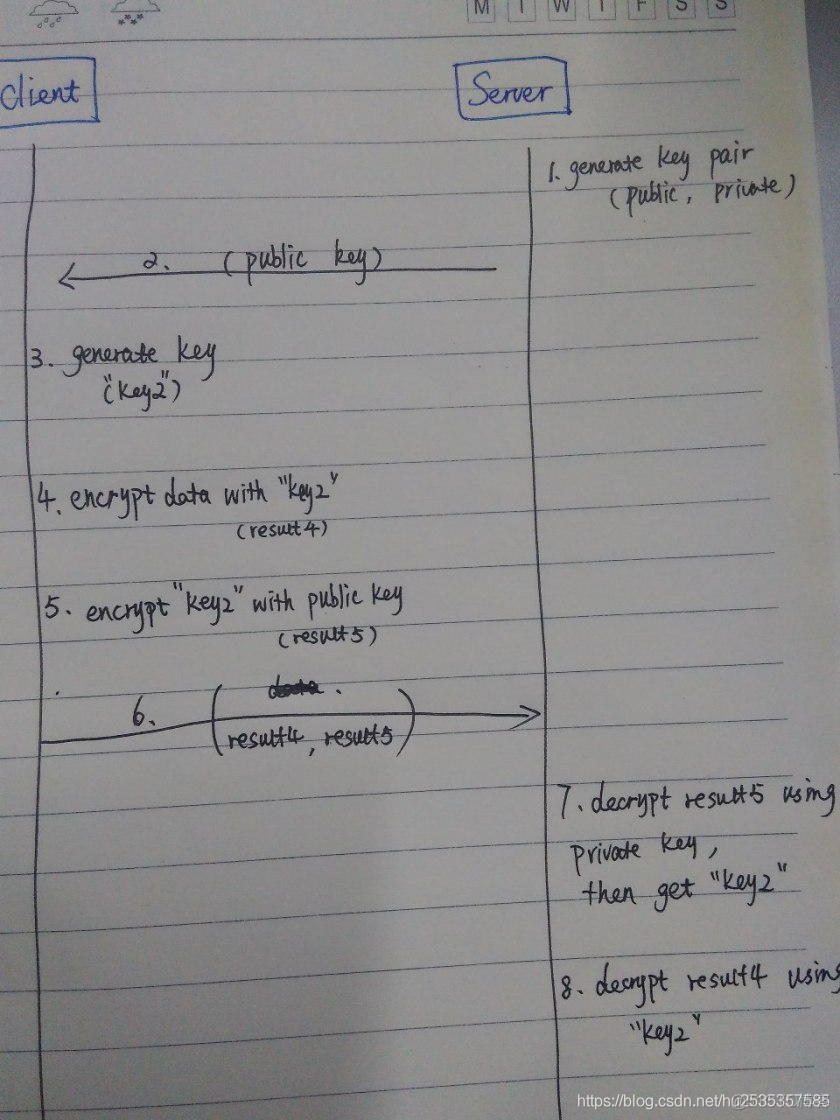 M T W T F S S
Client
Server
1. generate key pair
(public, private)
2. (public key)
3. generate key
("key2")
4. encrypt data with "key2"
(result4)
5. encrypt "key2" with public key
(result5)
6. (result4, result5)
7. decrypt result5 using
private key,
then get "key2"
8. decrypt result4 using
"key2"